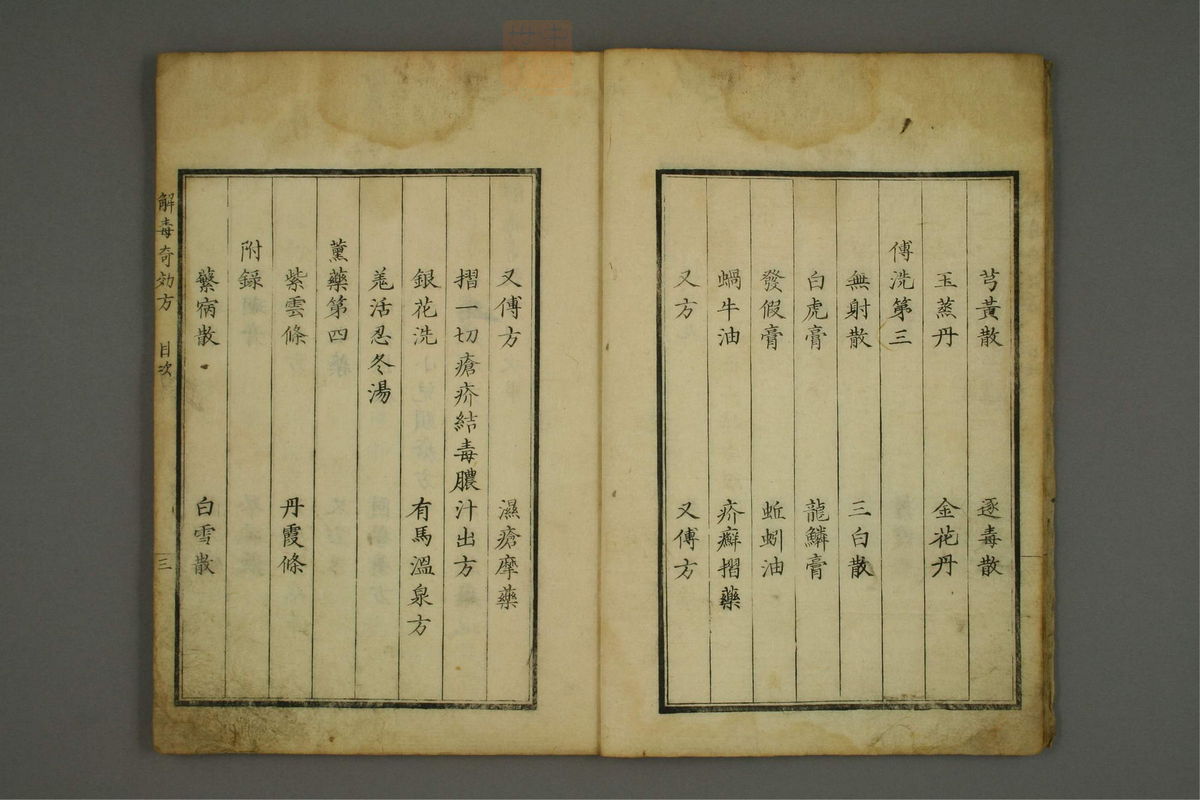 芎黃散 逐毒散
玉蒸丹 金花丹
傅洗第三
無射散 三白散
白虎膏 龍鱗膏
發假膏 蚯蚓油
蝸牛油 疥癬摺藥
又方 又傅方
又傅方 濕瘡摩藥
摺一切瘡疥結毒膿汁出方
銀花洗 有馬溫泉方
羗活忍冬湯
薰藥第四
紫雲條 丹霞條
附錄
蘩病散 白雪散
解毒奇効方 目次 三